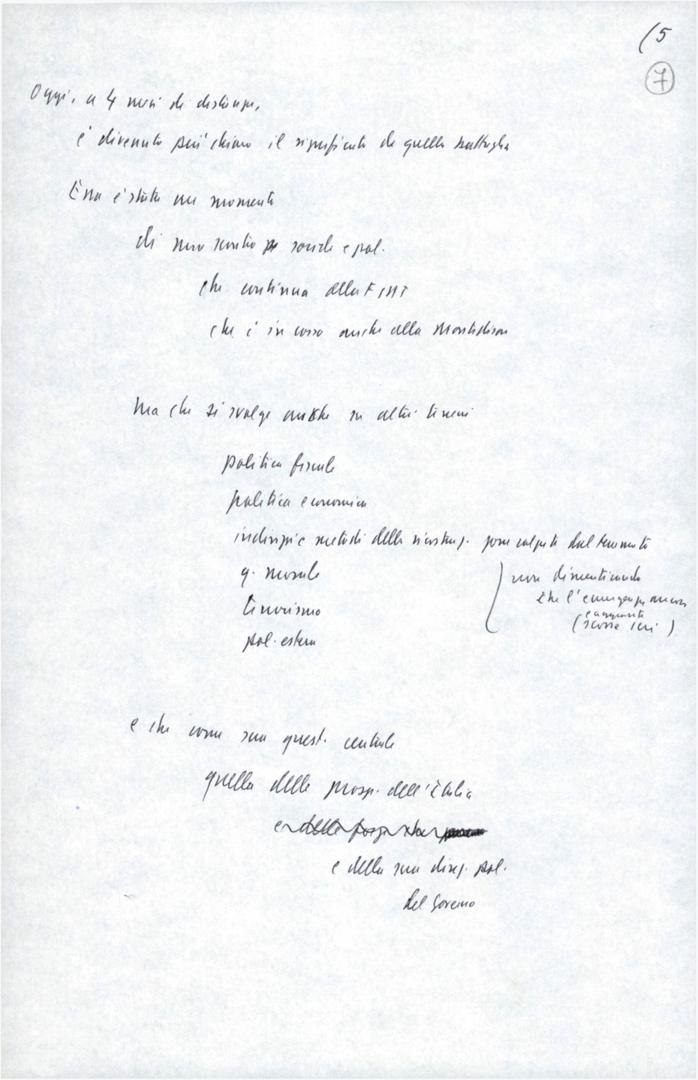 (5
7
Oggi, a 4 mesi di distanza,
è divenuto più chiaro il significato di quella battaglia
Essa è stata un momento
di uno scontro sociale e pol.
che continua alla FIAT
che è in corso anche alla Montedison
ma che si svolge anche su altri terreni
politica fiscale
politica economica
indirizzi e metodi della ricostruz. zone colpite dal terremoto
q. morale
non dimenticando
terrorismo
che l'emergenza ancora
(scosse ieri)
pol. estera
e che come sua quest. centrale
quella delle prosp. dell'Italia
e della
e della sua direz. pol.
del Governo